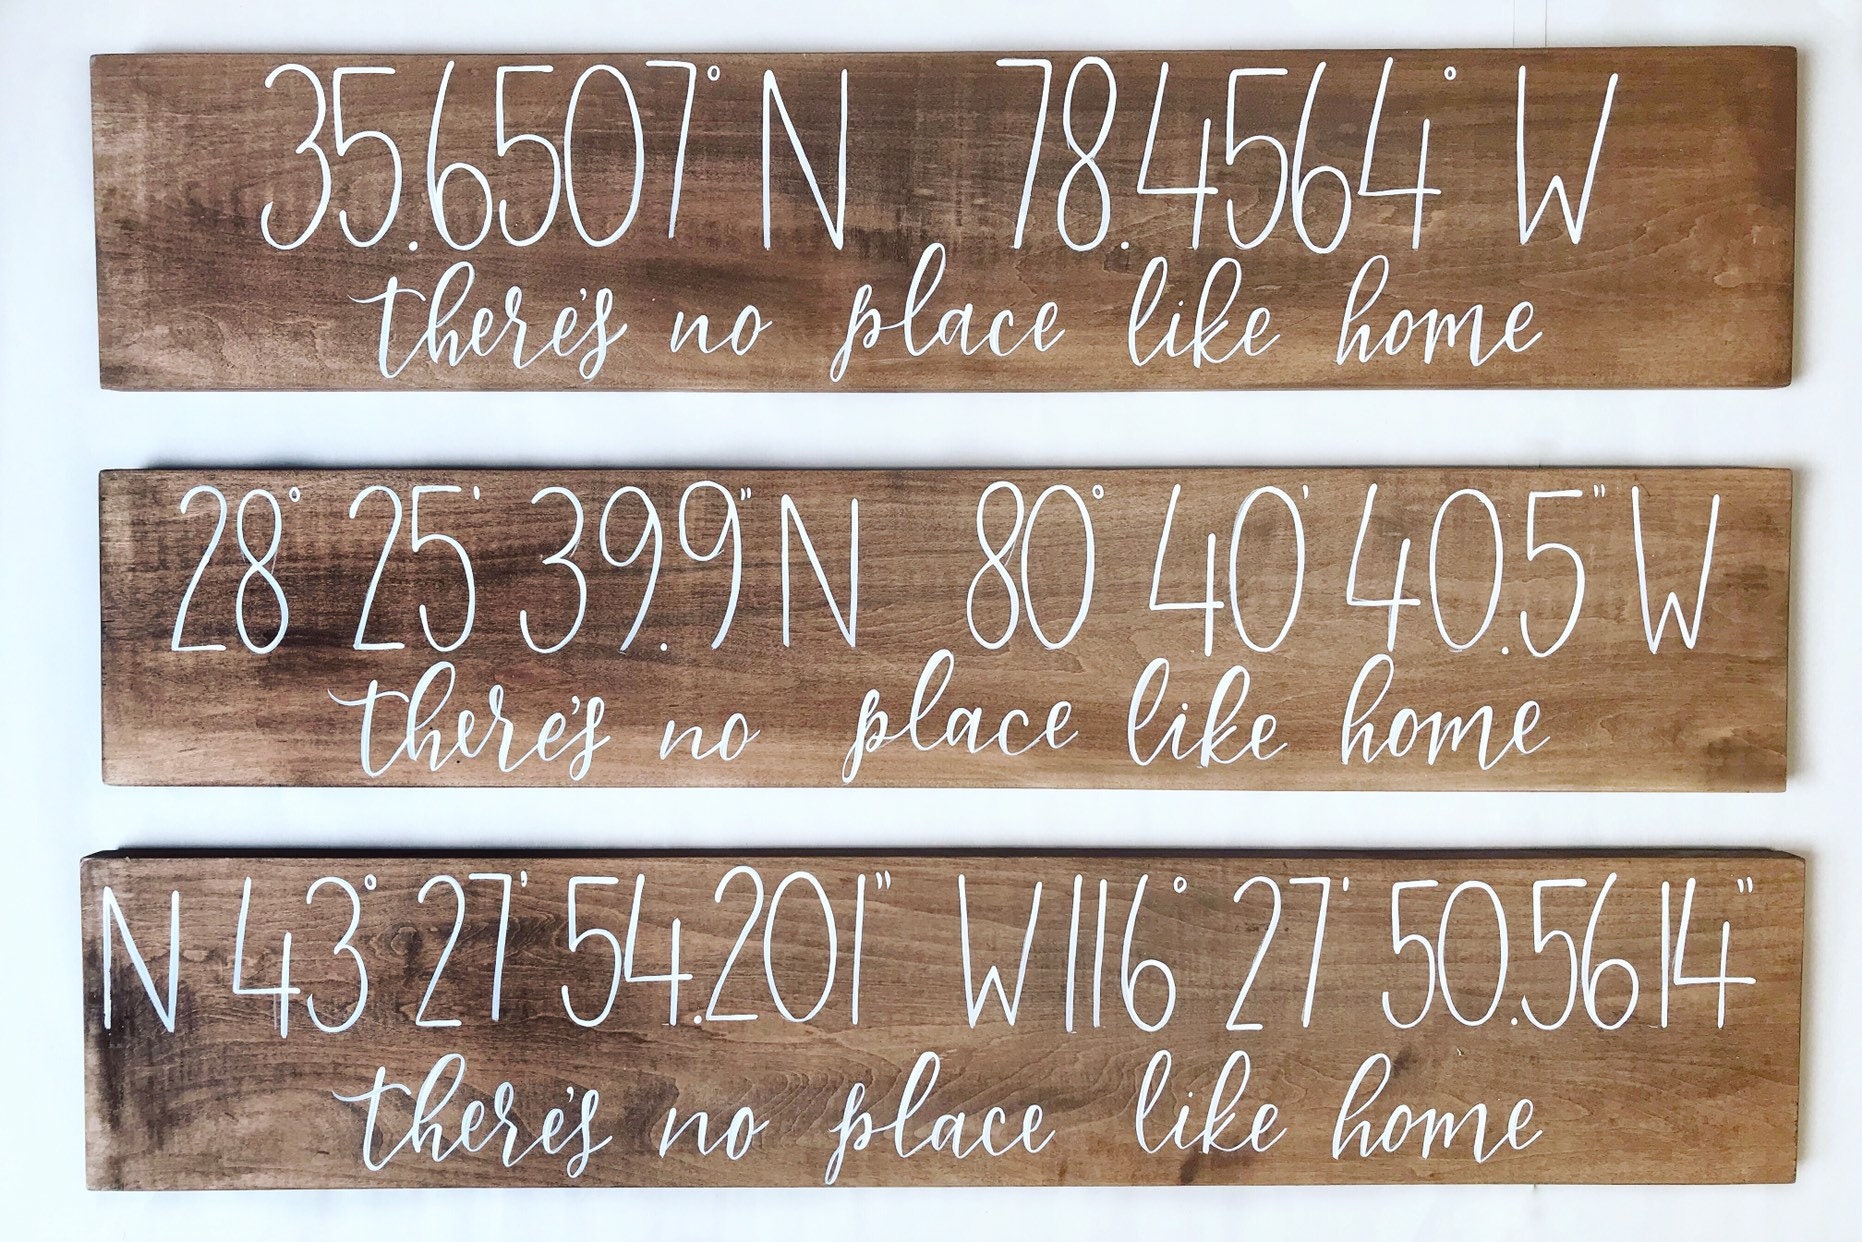 35.6507° N 78.4564° W
there's no place like home
28° 25' 39.9" N 80° 40' 40.5" W
there's no place like home
N 43° 27' 54.201" W 116° 27' 50.5614"
there's no place like home